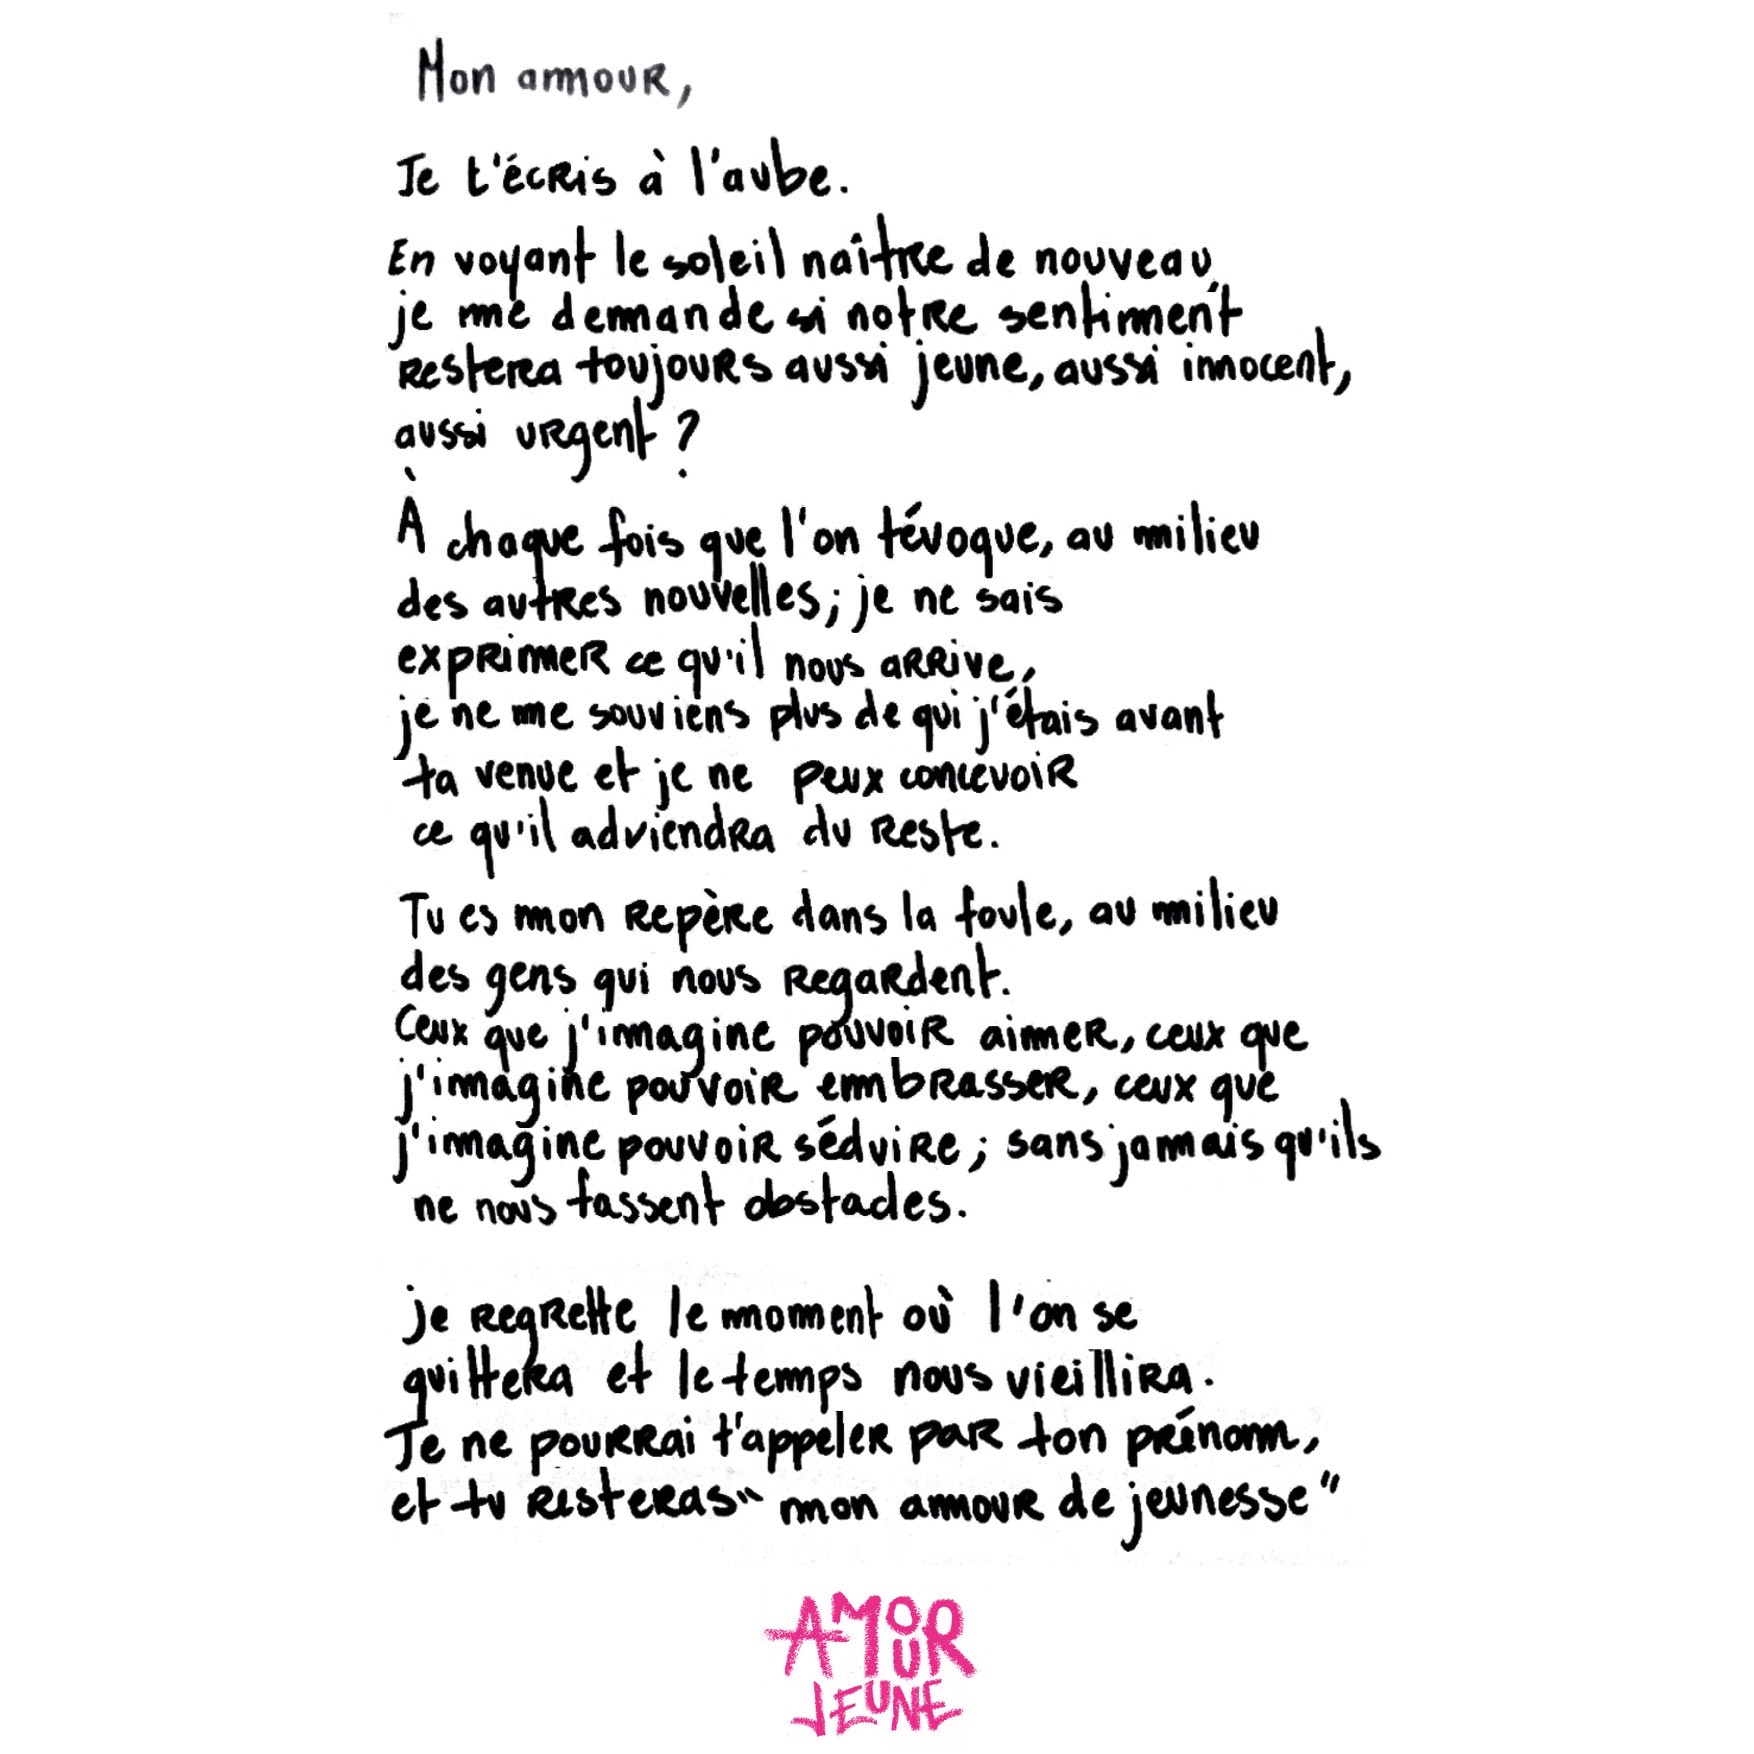 Mon amour,
Je t'écris à l'aube.
En voyant le soleil naître de nouveau,
je me demande si notre sentiment
restera toujours aussi jeune, aussi innocent,
aussi urgent ?
À chaque fois que l'on t'évoque, au milieu
des autres nouvelles ; je ne sais
exprimer ce qu'il nous arrive,
je ne me souviens plus de qui j'étais avant
ta venue et je ne peux concevoir
ce qu'il adviendra du reste.
Tu es mon repère dans la foule, au milieu
des gens qui nous regardent.
Ceux que j'imagine pouvoir aimer, ceux que
j'imagine pouvoir embrasser, ceux que
j'imagine pouvoir séduire ; sans jamais qu'ils
ne nous fassent obstacles.
je regrette le moment où l'on se
quittera et le temps nous vieillira.
Je ne pourrai t'appeler par ton prénom,
et tu resteras " mon amour de jeunesse "
AMOUR
JEUNE